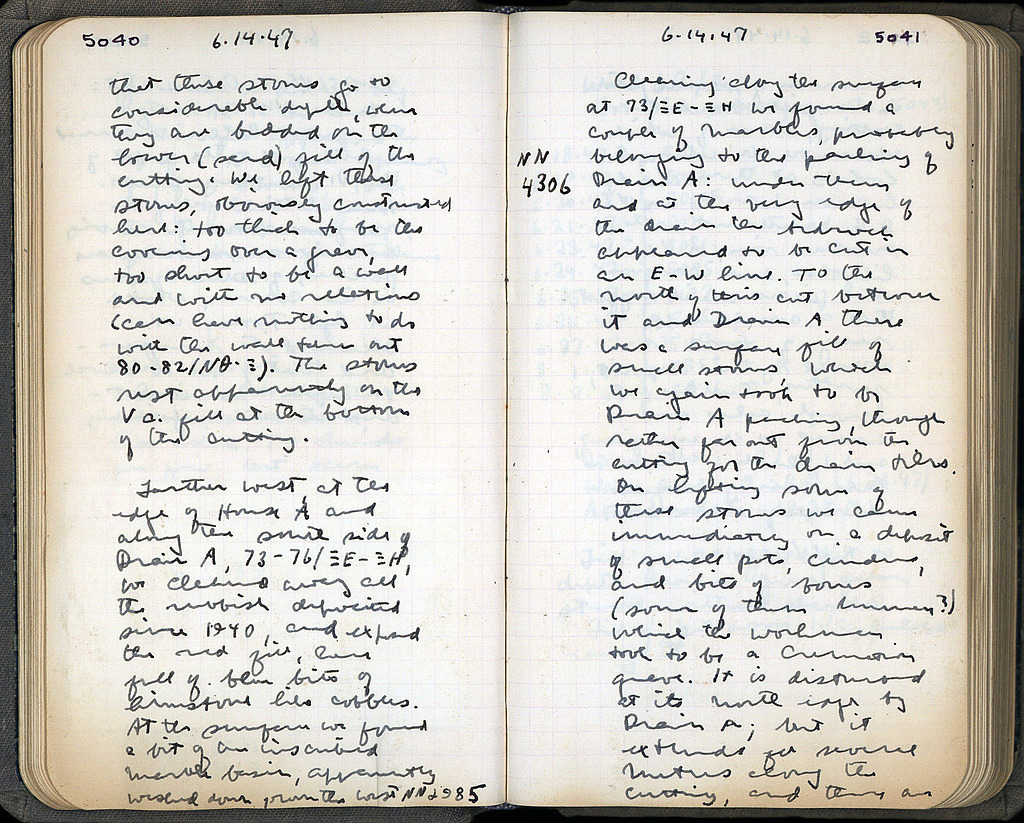 5040 6.14.47
that these stones go to
considerable depth, where
they are bedded on the
lower (sand) fill of the
cutting. We left these
stones, obviously constructed
here: too thick to be the
covering over a grave,
too short to be a wall
and with no relations
(can have nothing to do
with the wall farther out
80-82/ΝΘ-Ξ). The stones
rest apparently on the
V c. fill at the bottom
of the cutting.
Further west, at the
edge of House A and
along the south side of
Drain A, 73-76/ΞΕ-ΞΗ,
we cleaned away all
the rubbish deposited
since 1940, and exposed
the red fill, here
full of blue bits of
limestone like cobbles.
At the surface we found
a bit of an inscribed
marble basin, apparently
washed down from the west NN 2985
6.14.47 5041
Cleaning along the surface
at 73/ΞΕ-ΞΗ we found a
couple of marbles, probably
NN 4306
belonging to the packing of
Drain A: under them
and at the very edge of
the drain the bedrock
appeared to be cut in
an E-W line. To the
north of this cut between
it and Drain A there
was a surface fill of
small stones, which
we again took to be
Drain A packing, though
rather far out from the
cutting for the drain tiles.
On lifting some of
these stones we came
immediately on a deposit
of small pots, cinders,
and bits of bones
(some of them human?)
which the workmen
took to be a cremation
grave. It is disturbed
at its north edge by
Drain A; but it
extends for several
metres along the
cutting, and there are